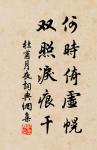 何時倚虛幌
双照淚痕干
杜甫月夜詞典網集